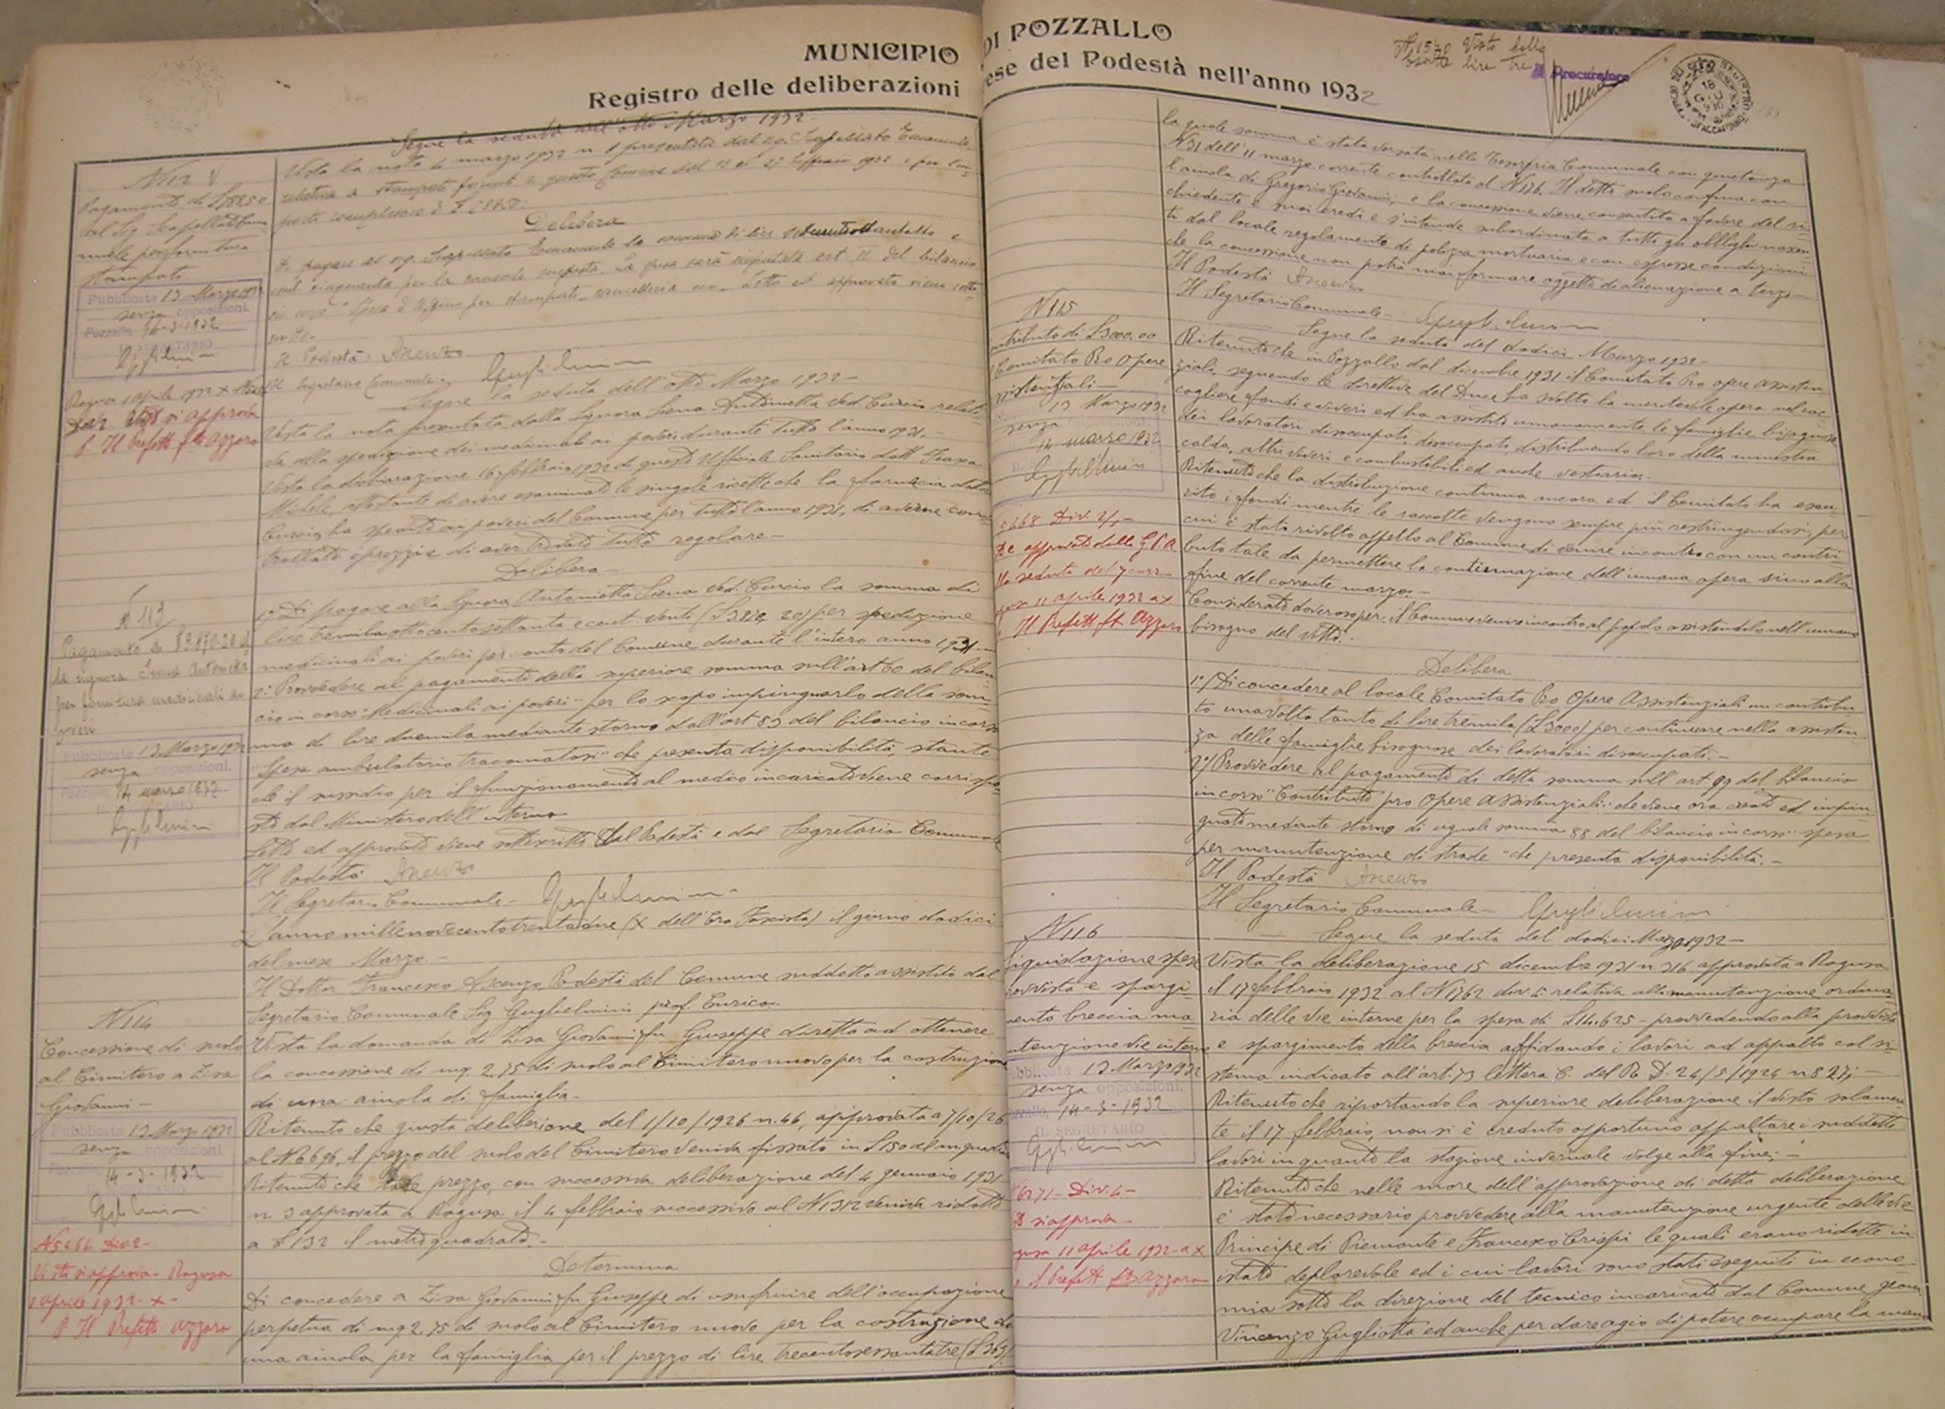 MUNICIPIO DI POZZALLO
Registro delle deliberazioni prese del Podestà nell'anno 1932
Segue la seduta dell'otto Marzo 1932
N 112
Pagamento di
al Sig. Scapellato Emma
nuele per fornitura
stampati
Pubblicata 13 Marzo 1932
senza opposizioni.
Pozzallo, 14-3-1932
IL SEGRETARIO
Visto la nota 4 marzo 1932 n. 8 presentata dal sig. Scapellato Emanuele
relativa a stampati forniti a questo Comune dal
Delibera
Di pagare al sig. Scapellato Emanuele la somma di lire
Il Podestà: Ascenzo
Il Segretario Comunale
Segue la seduta dell'otto Marzo 1932 -
Vista la nota presentata dalla Signora Siena Antonietta Ved. Curcio relati
va alla spedizione dei medicinali ai poveri durante tutto l'anno 1931. -
Michele, attestante di avere esaminato le singole ricette che la farmacia
Curcio ha spedito ai poveri del Comune per tutto l'anno 1931, di averne con
trollato i prezzi e di aver trovato tutto regolare -
Delibera -
N 113
Pagamento di
la signora Siena Antonietta
per fornitura medicinali ai
poveri
Pubblicata 13 Marzo 1932
senza opposizioni.
14 marzo 1932
1° Di pagare alla Signora Antonietta Siena Ved. Curcio la somma di
lire tremilaottocentosettanta e cent. venti per spedizione
medicinali ai poveri per conto del Comune durante l'intero anno 1931 -
2° Provvedere al pagamento della superiore somma sull'art 60 del bilan
cio in corso "Medicinali ai poveri" per lo scopo impinguarlo della som
ma di lire duemila mediante storno dall'art 83 del bilancio in corso
"Spese ambulatorio tracomatosi" che presenta disponibilità stante
che il sussidio per il funzionamento al medico incaricato viene corrispo
sto dal Ministero dell'interno
Letto ed approvato viene sottoscritto dal Podestà e dal Segretario Comunale
Il Podestà Ascenzo
Il Segretario Comunale - Guglielmini
L'anno millenovecentotrentadue (X dell'Era Fascista) il giorno dodici
del mese Marzo -
Il Dottor Francesco Ascenzo Podestà del Comune suddetto assistito dal
Segretario Comunale Sig Guglielmini prof. Enrico.
N 114
Concessione di suolo
al Cimitero a Zisa
Giovanni -
Pubblicata 13 Marzo 1932
senza opposizioni.
14-3-1932
N 5466 Div 2 -
Visto si approva - Ragusa
aprile 1932 - X -
P. Il Prefetto Azzaro
Vista la domanda di Zisa Giovanni fu Giuseppe diretta ad ottenere
la concessione di mq. 2,75 di suolo al Cimitero nuovo per la costruzione
di una aiuola di famiglia -
Ritenuto che giusta deliberazione del 1/10/1926 n. 46, approvata a 7/10/26
al N 6696, il prezzo del suolo del Cimitero veniva fissato in L 150 al mquadrato
Ritenuto che tale prezzo, con successiva deliberazione del 4 gennaio 1931
n. 3 approvata a Ragusa il 4 febbraio successivo al N 1312 veniva ridotto
a L 132 il metro quadrato -
Determina
Di concedere a Zisa Giovanni fu Giuseppe di usufruire dell'occupazione
perpetua di mq 2,75 di suolo al Cimitero nuovo per la costruzione di
una aiuola per la famiglia per il prezzo di lire trecentosessantatre (L 363)
Visto
lire tre
Il Procuratore
la quale somma è stata versata nella Tesoreria Comunale con quietanza
N 31 dell'11 marzo corrente controllata al N 176. Il detto suolo confina con
l'aiuola di Gregorio Giovanni, e la concessione viene consentita a favore del ri
chiedente e suoi eredi e s'intende subordinata a tutti gli obblighi nascen
ti dal locale regolamento di polizia mortuaria e con espressa condizione
che la concessione non potrà mai formare oggetto di alienazione a terzi -
Il Podestà Ascenzo
Il Segretario Comunale -
Segue la seduta del dodici Marzo 1932 -
N 115
Contributo di L 3000,00
Comitato Pro Opere
Assistenziali -
13 Marzo 1932
senza opposizioni
14 marzo 1932
5468 Div. 2/ -
approvato dalla G P A
seduta del 7 corr -
11 aprile 1932 a X
Il Prefetto ft Azzaro
Ritenuto che in Pozzallo dal dicembre 1931 il Comitato Pro opere assisten
ziali, seguendo le direttive del Duce ha svolto la meritevole opera nel rac
cogliere fondi e viveri ed ha assistito umanamente le famiglie bisognose
dei lavoratori disoccupati, distribuendo loro della minestra
calda, altri viveri e combustibili ed anche vestiario. -
Ritenuto che la distribuzione continua ancora ed il Comitato ha esau
rito i fondi mentre le raccolte vengono sempre più restringendosi, per
cui è stato rivolto appello al Comune di venire incontro con un contri
buto tale da permettere la continuazione dell'umana opera sino alla
fine del corrente marzo. -
Considerato doveroso per il Comune venire incontro al popolo assistendolo nell'umano
bisogno del vitto; -
Delibera
1°/ Di concedere al locale Comitato Pro Opere Assistenziali un contribu
to una volta tanto di lire tremila (L 3000) per continuare nella assisten
za delle famiglie bisognose dei lavoratori disoccupati. -
2°/ Provvedere al pagamento di detta somma sull'art 99 del bilancio
in corso "Contributo pro Opere Assistenziali" che viene ora creato ed impin
guato mediante storno di uguale somma 88 del bilancio in corso "spesa
per manutenzione di strade" che presenta disponibilità. -
Il Podestà Ascenzo
Il Segretario Comunale - Guglielmini
Segue la seduta del dodici Marzo 1932 -
N 116
Liquidazione spese
provvista e spargi
mento breccia ma
nutenzione vie interne
Pubblicata 13 Marzo 1932
senza opposizioni.
Pozzallo, 14-3-1932
IL SEGRETARIO
Div. 4 -
si approva -
Ragusa 11 aprile 1932 - a X
Il Prefetto ft Azzaro
Vista la deliberazione 15 dicembre 1931 n 316 approvata a Ragusa
il 17 febbraio 1932 al N 1762 div. 4 relativa alla manutenzione ordina
ria delle vie interne per la spesa di L 14.625 - provvedendo alla provvista
e spargimento della breccia affidando i lavori ad appalto col si
stema indicato all'art. 73 lettera C. del R. D. 24/5/1924 n 827; -
Ritenuto che riportando la superiore deliberazione il visto solamen
te il 17 febbraio, non si è creduto opportuno appaltare i suddetti
lavori in quanto la stagione invernale volge alla fine; -
Ritenuto che nelle more dell'approvazione di detta deliberazione
è stato necessario provvedere alla manutenzione urgente delle vie
Principe di Piemonte e Francesco Crispi le quali erano ridotte in
istato deplorevole ed i cui lavori sono stati eseguiti in econo
mia sotto la direzione del tecnico incaricato dal Comune geom
Vincenzo Gugliotta ed anche per dare agio di potere occupare la mano